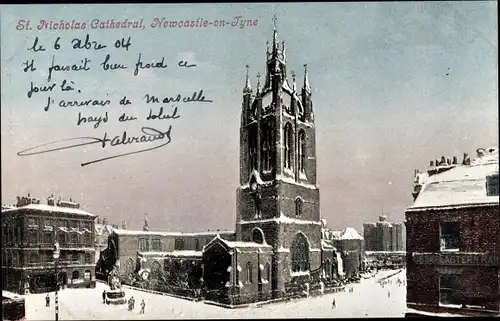 St. Nicholas Cathedral, Newcastle-on-Tyne
le 6 Xbre 04
Il faisait bien froid ce
jour là.
J'arrivais de Marseille
pays du soleil